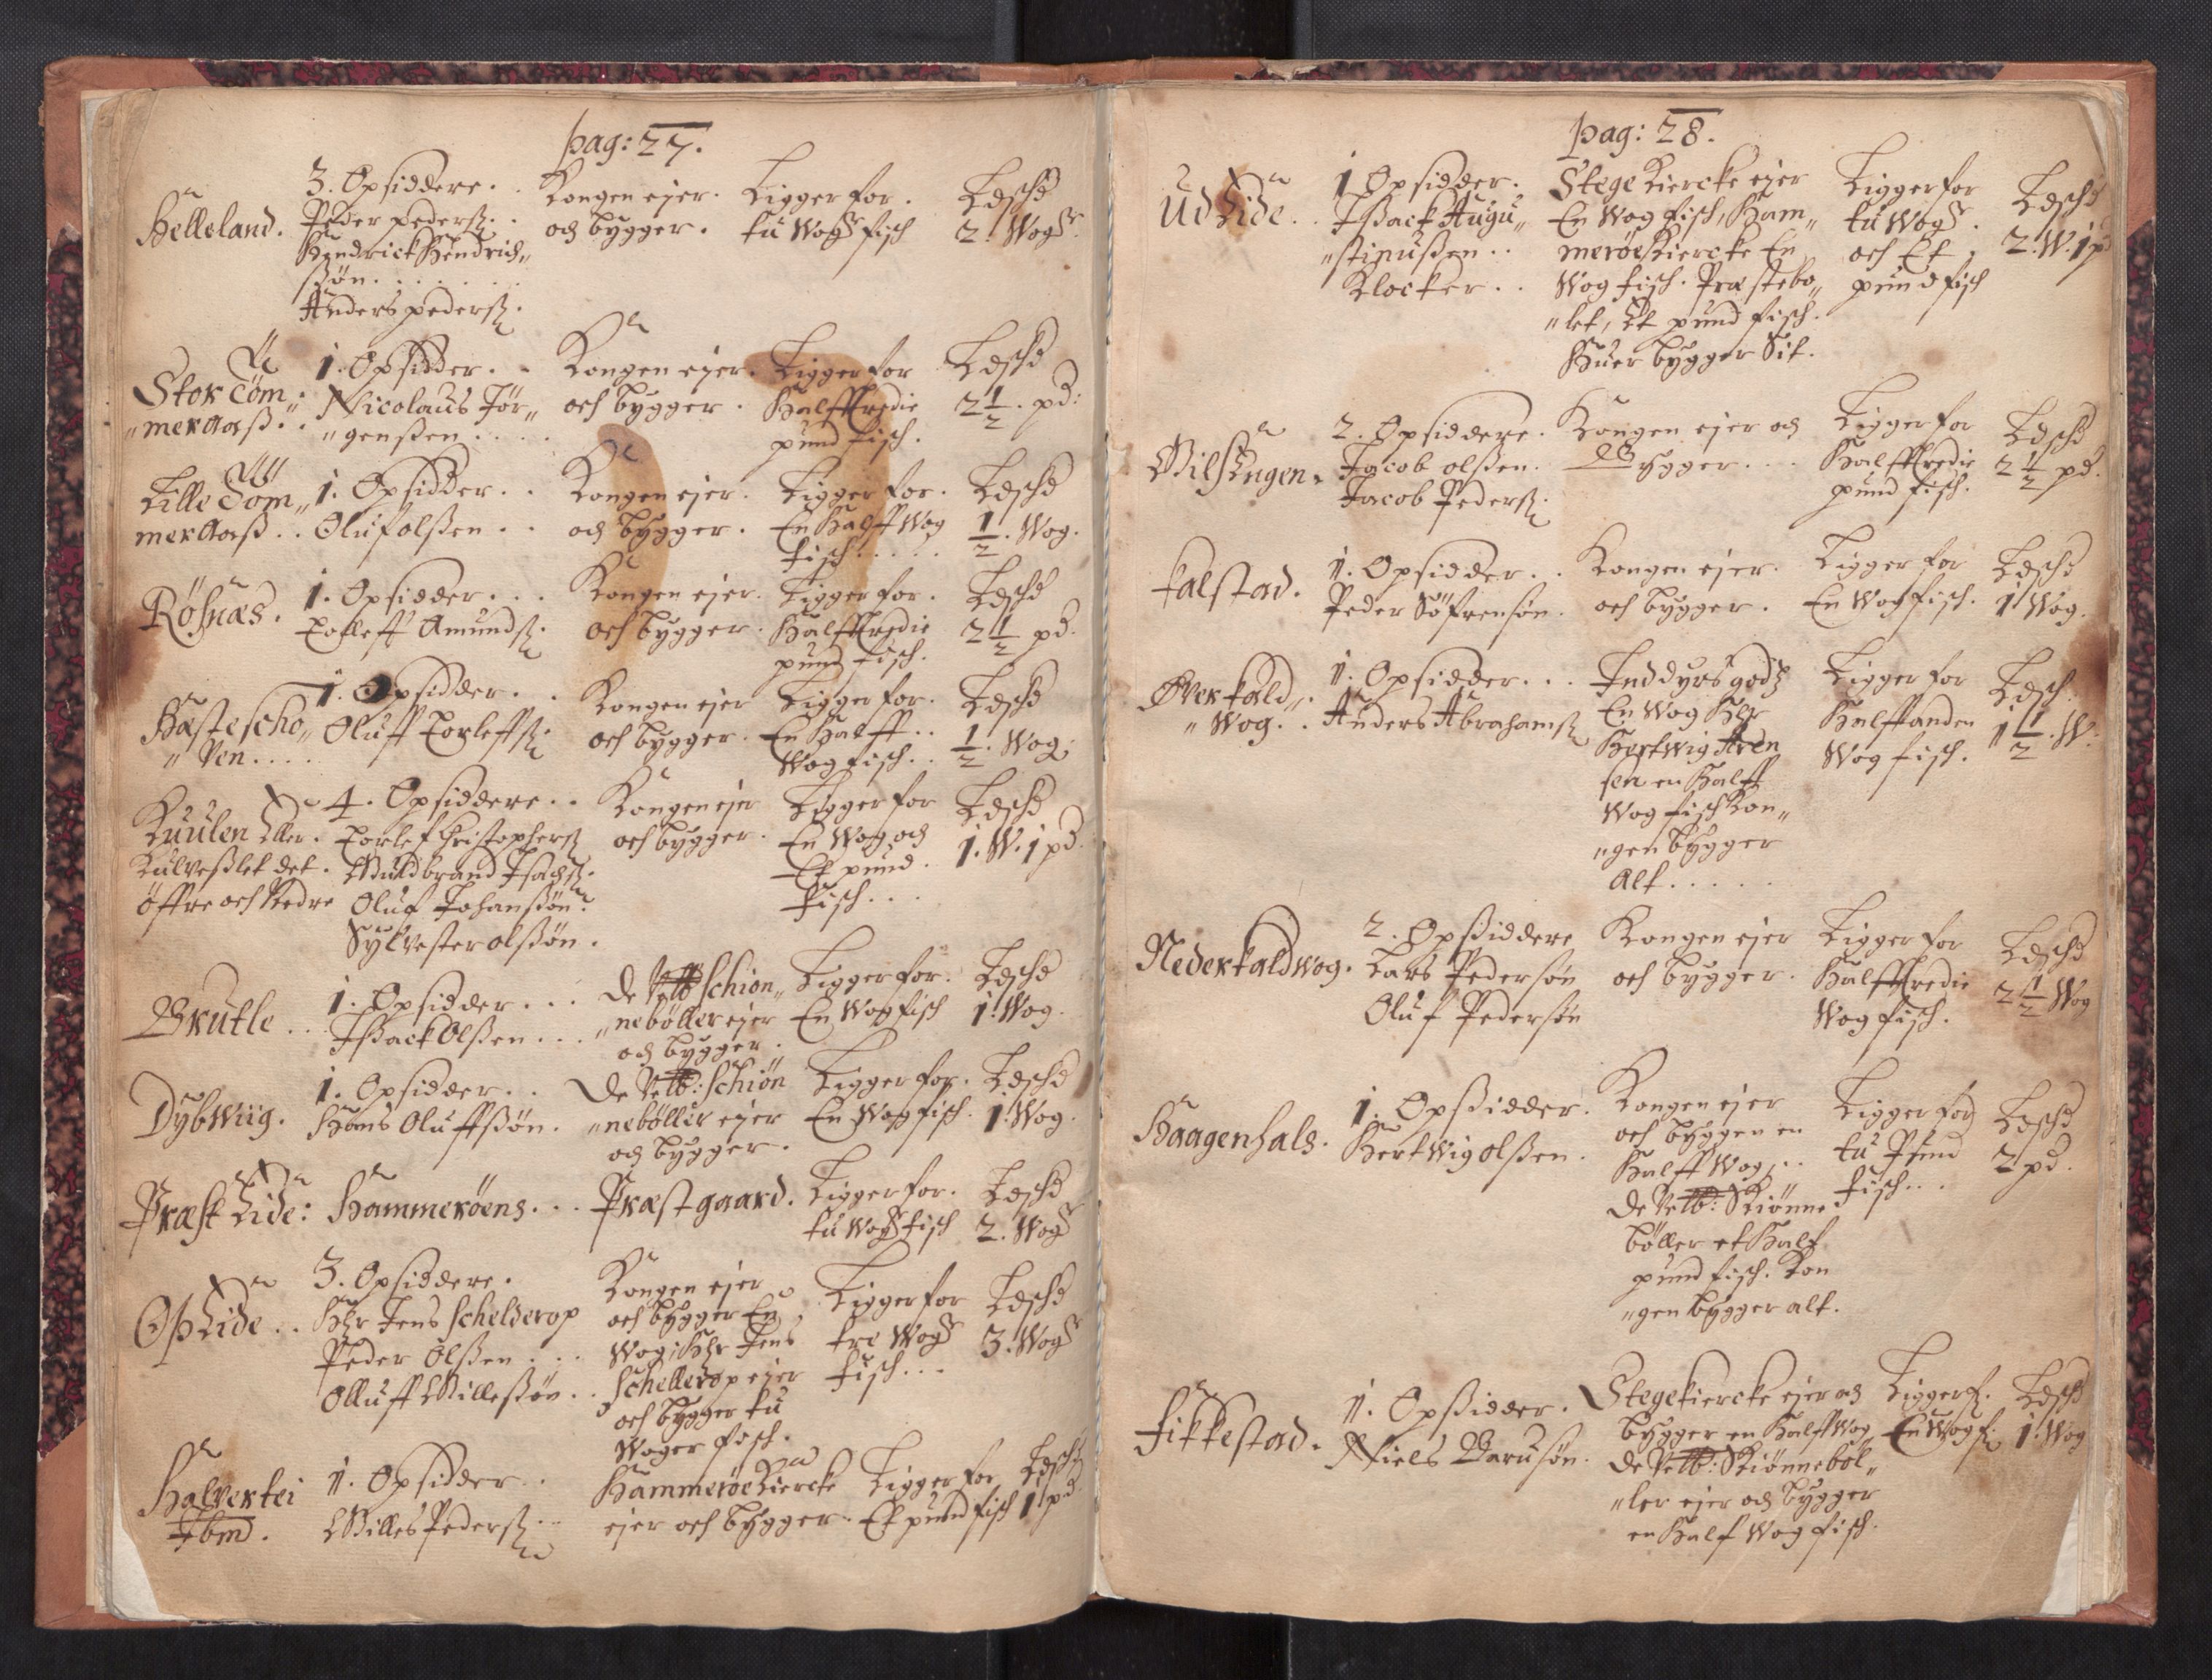 pag: 27.
Helleland.
3. Opsiddere. .
Peder pederß. .
Hendrick Hendrich„
ßøn. . . . . .
Anders pederß.
Kongen ejer.
och bygger.
Ligger for.
tu Wogr fisch
Ldschd
2. Wogr.
Stor Töm„
„mer Aaß. .
1. Opsidder. .
Nicolaus Jör„
„genßen. . . .
Kongen ejer.
och bygger.
Ligger for
Halfftredie
pund fisch.
Ldschd
2 1/2. pd:
Lille Töm„
mer Aaß. .
1. Opsidder. .
Oluf olßen. .
Kongen ejer.
och bygger.
Ligger for.
En Halff Wog
fisch. . . . .
Ldschd
1/2. Wog.
Rößnæs.
1. Opsidder. . .
Torleff Amundß.
Kongen ejer.
och bygger.
Ligger for.
Halfftredie
pund fisch.
Ldschd
2 1/2 pd.
Hæstescho„
„Ven. . . .
1. Opsidder. .
Oluff Torleffß.
Kongen ejer
och bygger.
Ligger for.
En Halff. .
Wog fisch. .
Ldschd
1/2. Wog.
Kuulen Eller.
Kulveßlet det.
öffre och Nedre
4. Opsiddere. .
Torlef Christopherß
Guldbrand Isachß.
Oluf Johanßøn.
Sylvester olßøn.
Kongen ejer
och bygger.
Ligger for
En Wog och
Et pund.
fisch. . .
Ldschd
1. W. 1 pd.
Brutle. .
1. Opsidder. . .
Ißack Olßen. . .
De Velb Schion„
„nebøller ejer
och bygger.
Ligger for.
En Wog fisch
Ldschd
1. Wog.
Dybwiig.
1. Opsidder. .
Hans Oluffßøn.
De Velb: Schiön
„nebøller ejer
och bygger.
Ligger for.
En Wog fisch.
Ldschd
1. Wog.
Præst Lide:
Hammerøens. . .
Præstgaard.
Ligger for.
tu Wogr fisch
Ldschd
2. Wogr
Op Lide. .
3. Opsiddere.
Hr Jens Schelderop
Peder Olßen. . .
Olluff Nilleßøn. .
Kongen ejer
och bygger En
Wog; Hr Jens
Schellerop ejer
och bygger tu
Woger fisch.
Ligger for
tre Wogr
fisch. . .
Ldschd
3. Wogr
Halvertei
Ibm.
1. Opsidder. .
Nilles Pederß. .
Hammerøe Kiercke
ejer och bygger.
Ligger for
Et pund fisch
Ldschd
1 pd.
pag: 28.
Ud Lide. .
1 Opsidder.
Ißack Augu„
„stinußen. .
Klocker. .
Stege Kiercke ejer
En Wog fisch, Ham„
merøe Kiercke En
Wog fisch. Præstebo„
„let, Et pund fisch.
Huer bygger Sit.
Ligger for
tu Wogr.
och Et
pund fisch
Ldschd
2. W. 1 pd
Nilsøngen.
2. Opsiddere.
Jacob olßen.
Jacob Pederß.
Kongen ejer och
bygger. . .
Ligger for
Halfftredie
pund fisch.
Ldschd
2 1/2 pd.
Falstad.
1. Opsidder. .
Peder Söfrensøn.
Kongen ejer.
och bygger.
Ligger for
En Wog fisch.
Ldschd
1 Wog.
Øver Kald„
„Wog. .
1. Opsidder. . .
Anders Abrahamß
Inddyrs godz
En Wog Hr
Hertwig Aren
sen en Halff
Wog fisch Kon„
„gen bygger
Alt. . . . .
Ligger for
Halffanden
Wog fisch.
Ldsch.
1 1/2. W.
Neder Kaldwog.
2. Opßiddere
Lars Pedersøn
Oluf Pedersøn
Kongen ejer
och bygger.
Ligger for
Halfftredie
Wog fisch.
Ldschd
2 1/2 Wog
Haagenhals.
1. Opßidder.
Hertwig olßen.
Kongen ejer
och byggen en
Halff Wog. .
De Velb: Skiønne
bøller et Half
pund fisch. Kon
„gen bygger alt.
Ligger for
tu Pund
fisch. . .
Ldschd
2 pd.
Fikkestad.
1. Opßidder.
Niels Barusøn.
Stege Kiercke ejer och
bygger en Halff Wog,
De Velb: Skiønnebøl„
„ler ejer och bygger
en Half Wog fisch.
Ligger f.
En Wog f.
Ldschd
1. Wog